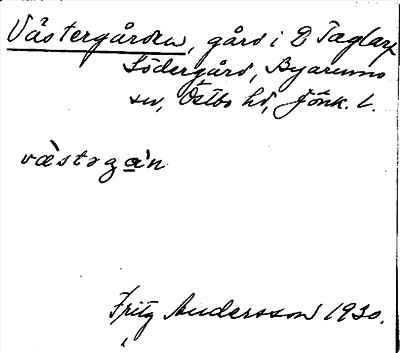 Västergården, gård i 2 Taglarp
Södergård, Byarums
sn, Östbo hd, Jönk. l.
væ`stəga̲'n
Fritz Andersson 1930.